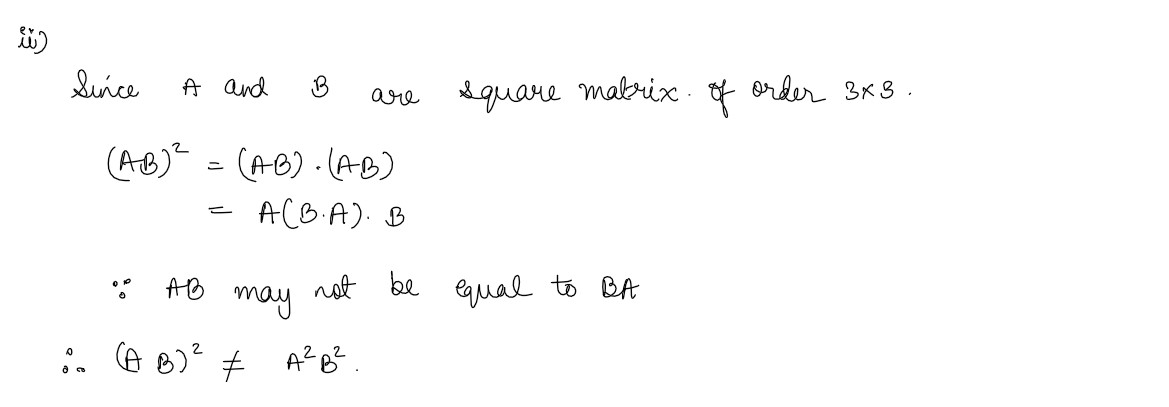 ii)
Since A and B are square matrix. of order 3×3.
(AB)² = (AB).(AB)
= A(B.A). B
∵ AB may not be equal to BA
∴ (A B)² ≠ A²B².